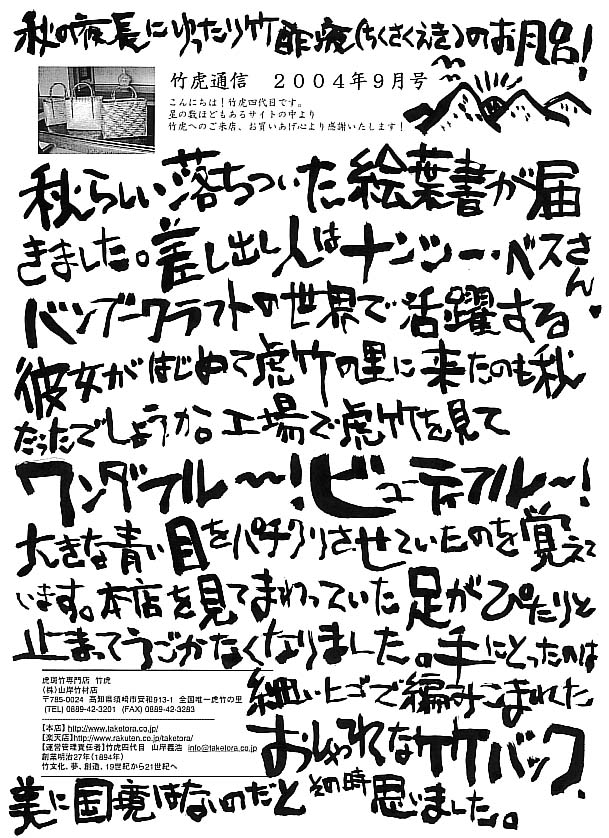 秋の夜長にゆったり竹酢液(ちくさくえき)のお風呂!
竹虎通信 2004年9月号
こんにちは!竹虎四代目です。
星の数ほどもあるサイトの中より
竹虎へのご来店、お買いあげ心より感謝いたします!
秋らしい落ちついた絵葉書が届
きました。差し出し人はナンシー・ベスさん
バンブークラフトの世界で活躍する
彼女がはじめて虎竹の里に来たのも秋
だったでしょうか。工場で虎竹を見て
ワンダフル〜!ビューティフル〜!
大きな青い目をパチクリさせていたのを覚えて
います。本店を見てまわっていた足がぴたりと
止まってうごかなくなりました。手にとったのは
細いヒゴで編みこまれた
おしゃれな竹バック。
美に国境はないのだとその時思いました。
虎斑竹専門店 竹虎
(株)山岸竹材店
〒785-0024 高知県須崎市安和913-1 全国唯一虎竹の里
(TEL) 0889-42-3201 (FAX) 0889-42-3283
【本店】http://www.taketora.co.jp/
【楽天店】http://www.rakuten.co.jp/taketora/
【運営管理責任者】竹虎四代目 山岸義浩 info@taketora.co.jp
創業明治27年(1894年)
竹文化、夢、創造、19世紀から21世紀へ